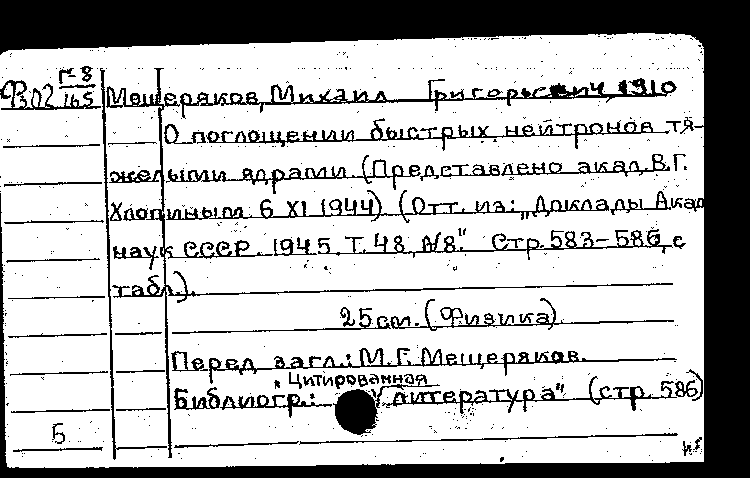 Г-8
Ф302 165 Мещеряков, Михаил Григорьевич, 1910
О поглощении быстрых нейтронов тя-
желыми ядрами. (Представлено акад. В.Г.
Хлопиным 6 XI 1944) (Отт. из: „Доклады Акад
наук СССР. 1945. Т. 48, №8." Стр. 583-586, с
табл.).
25см. (Физика)
Перед загл.: М.Г. Мещеряков.
Библиогр.: „Цитированная литература" (стр. 586)
Б